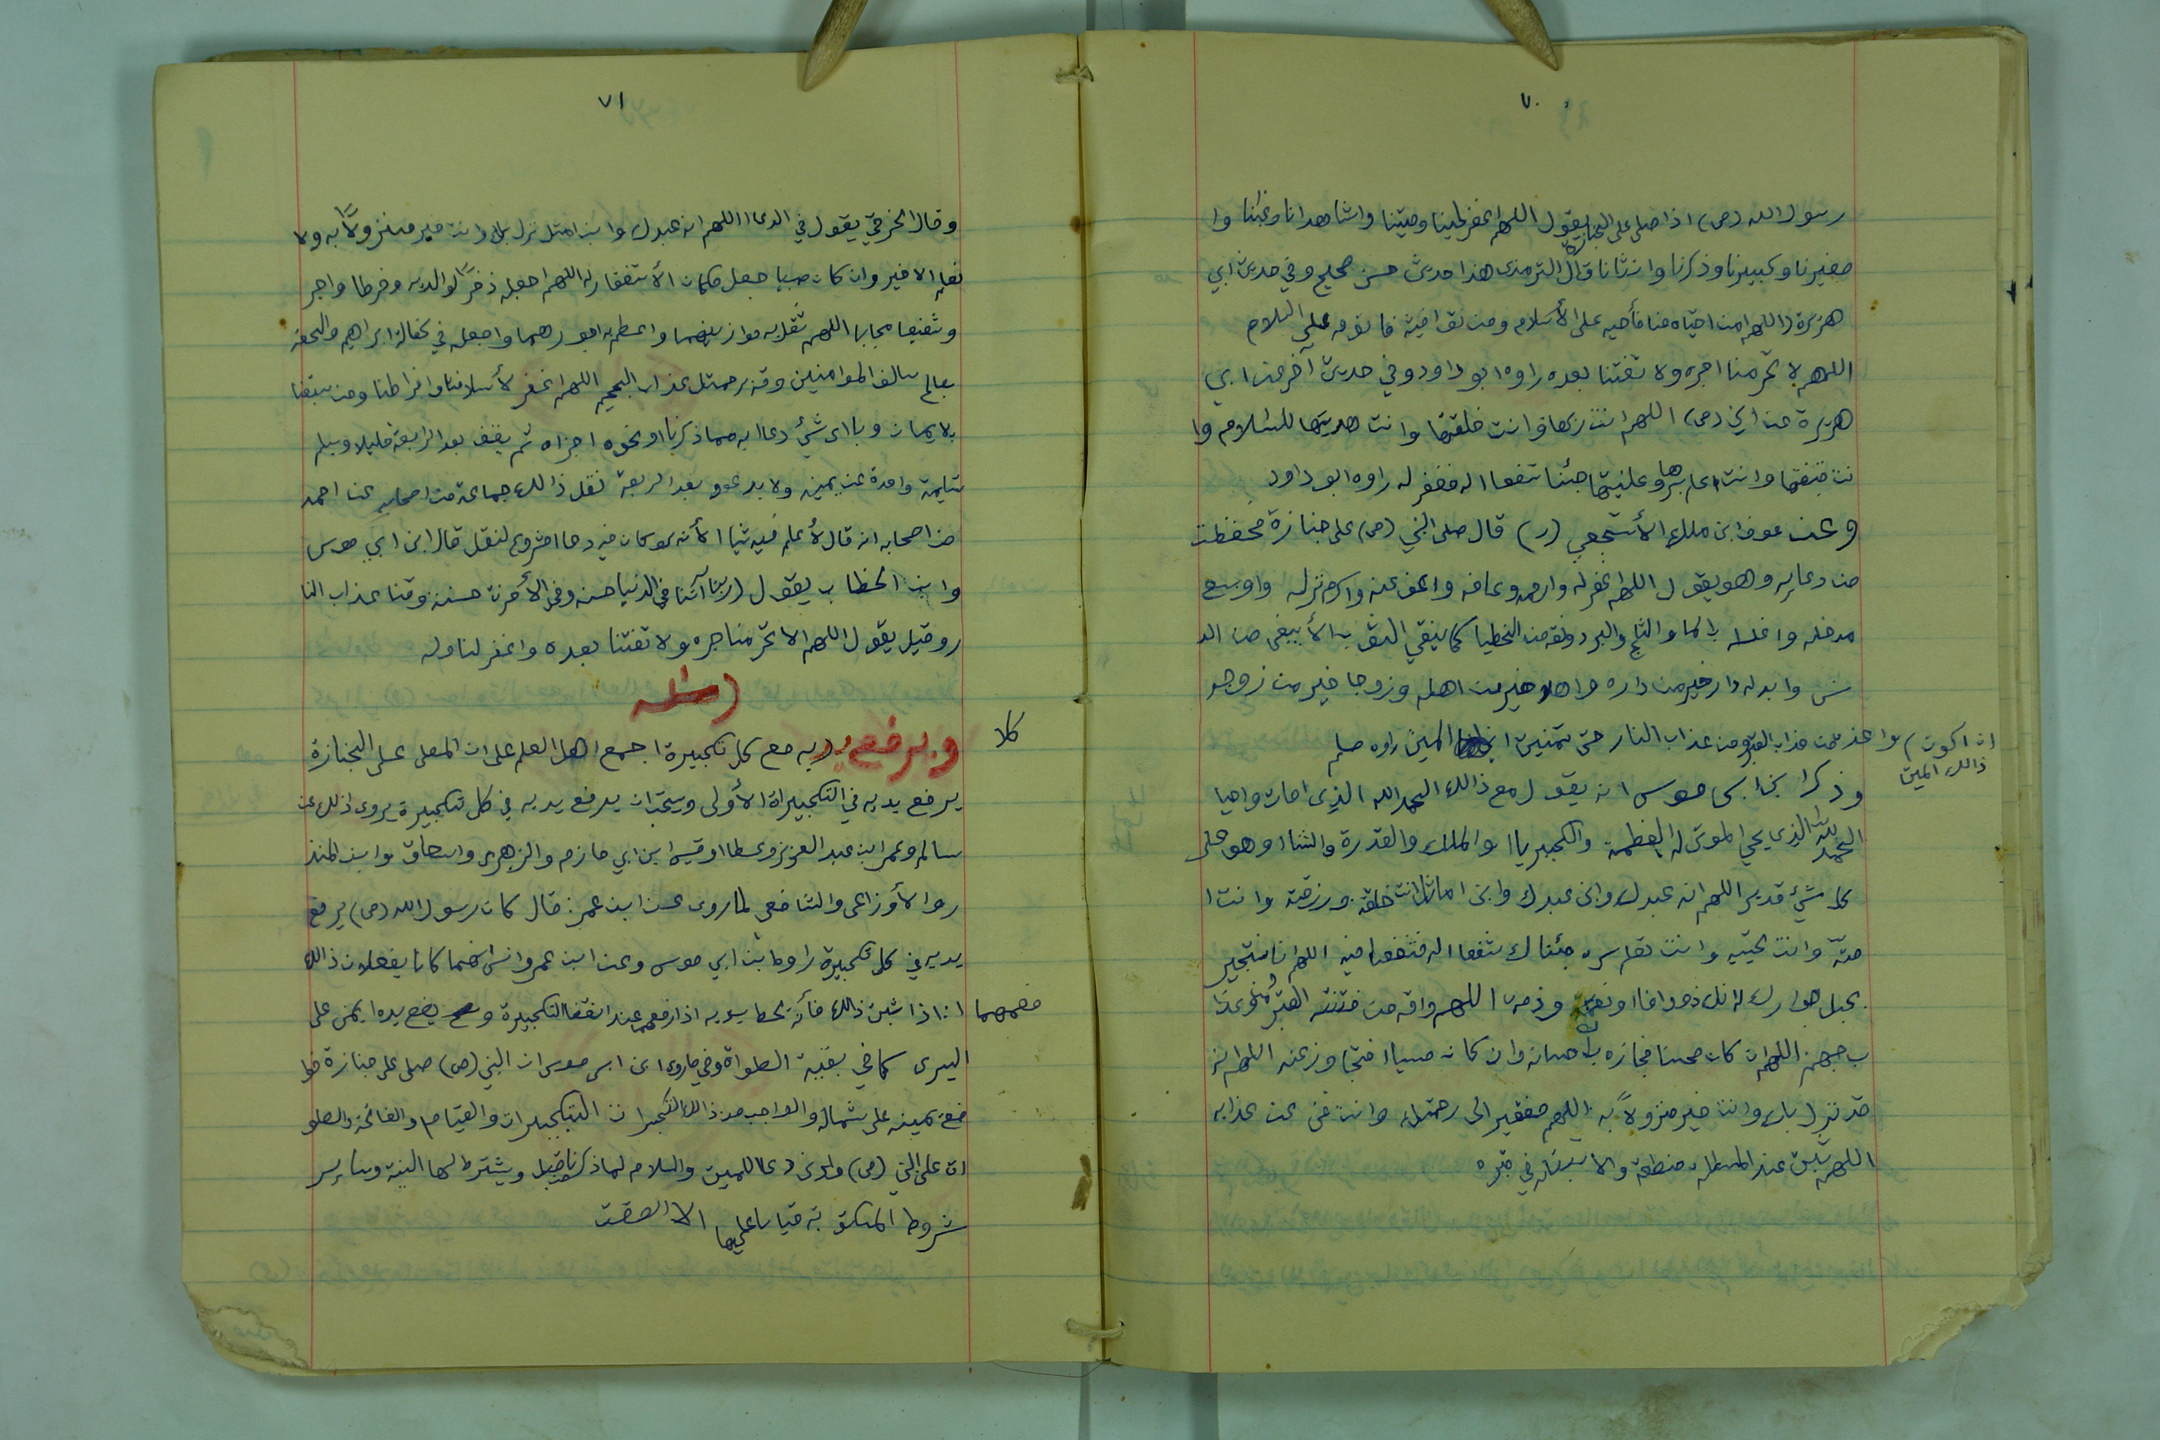 ٧٠
رسول الله (ص) اذا صلى على الجنازة يقول اللهم اغفر لحينا وميتنا وشاهدنا وغئبنا وا
صغيرنا وكبيرنا وذكرنا وانثانا قال الترمذى هذا حديث حسن صحيح وفي حديث ابي
هريرة (اللهم من احيّاه منا فأحيه على الأسلام ومن توافيته فاتوفه على السلام
اللهم لا تحرمنا اجره ولا تفتنا بعده راوه ابو داود وفي حديث آخر عن ابي
هريرة عن النبي (ص) اللهم انت ربها وانت خلقتها وانت هديتها للسلام وا
نت قبضتها وانت اعلم بسرها وعلنيتها جئنا شفعا اله فغفر له راوه ابو داود
وعن عوف ابن ملك الأشجعي (ر) قال صلى النبي (ص) على جنازة فحفظت
من دعايه وهو يقول اللهم اغفر له وارحمه وعافه واعف عنه واكرم نزله واوسع
مدخله واغسله بالما والثلج والبرد ونقه من الخطيا كما ينقي الثوب الأبيض من الد
نس وابدله دار خير من داره واهلا خير من اهله وزوجا خير من زوجه
واعذه من عذاب القبر ومن عذاب النار حتى تمنيت ان الميت راوه مسلم
ان اكون)
ذالك الميت
وذكر ابن ابى موسى انه يقول مع ذالك الحمد الله الذي امات واحيا
الحمد لله الذي يحي الموتى له العظمة والكبريا اوالملك والقدرة والثنا اوهو على
كل شئ قدير اللهم انه عبدك وابن عبدك وابن امتك انت خلقته ورزقته وانت ا
متّه وانت تحيّيه وانت تعلم سره جئناك شفعا اله فشفعنا فيه اللهم انا نستجير
بحبل جوارك له انك ذو وافا اوذمة اللهم واقه من فتنة القبر ومن عذا
ب جهنم اللهم ان كان محسنا فجازه باحسانه وان كانه مسيا افتجاوز عنه اللهم انه
قد نزل باك وانت خير منزولاً به اللهم فقير الى رحمتك وانت غني عن عذابه
اللهم ثبّت عند المسئلة منطقه والا تبتله في قبره
٧١
وقال الخرقيّ يقول في الدعا اللهم انه عبدك وابن امتك نزل بك وانت خير منزولاً به ولا
نعلم الا خير وان كان صبيا جعل مكان الأستغفار له اللهم اجعله ذخرًا لوالديه وفرطا واجر
وشفيعا مجابا اللهم ثقل به موازينهما واعظم به اجورهما واجعله في كفالة ابراهيم والحقه
بصالح سالف الموامنين وقه برحمتك عذاب الجحيم اللهم اغفر لأسلافنا وافراطنا ومن سبقنا
بلايمان وباى شئ دعا ابه مما ذكرنا اونحوه اجزاه ثم يقف بعد الرابعة قليلا ويسلم
تسليمة واحدة عن يمينه ولا يدعو بعد الربعة نقل ذالك جماعة من اصحابه عن احمد
من اصحابه انه قال لأعلم فيه شيا الأنه لو كان فيه دعا امشروع لنقل قال ابن ابي موسى
وابن الخطاب يقول (ربنا آتنا في الدنيا حسنه وفى الأخرة حسنه وقنا عذاب النا
ر وقيل يقول اللهم الا تحرمنا اجره ولا تفتنا بعده واغفر لنا وله
(مسئله
ويرفع يديه مع كل تكبيرة اجمع اهل العلم على ان المصلى على الجنازة
كلا
يرفع يديه في التكبيراة الأولى ويستحّب ان يرفع يديه في كل تكبيرة يروى ذلك عن
سالم وعمر ابن عبد العزيز وعطا اوقيس ابن ابي حازم والزهري واسحاق وابن المنذ
ر والأوزاعى والشافعي لما روى عن ابن عمر: قال كان رسول الله (ص) يرفع
يديه في كل تكبيرة راوه ابن ابي موسى وعن ابن عمر وانس انهما كانا يفعلان ذالك
فمهما
اذا ثبت ذالك فأنه يحط يديه اذا رفعهما عند انقضا التكبيرة ويضع يده ايمنى على
اليسرى كما في بقيّة الصلواة وفي ماروى ابن ابى موسى ان النبي (ص) صلى على جنازة فوا
ضع يمينه على شماله والواجب من ذالك التكبيرات والقيّام والفاتحة والصلو
اة على النبي (ص) وادنى دعا للميت والسلام لما ذكرنا قبل ويشترط لها النية وسايسر
شروط المكتوبة قياسا عليها الا الوقت